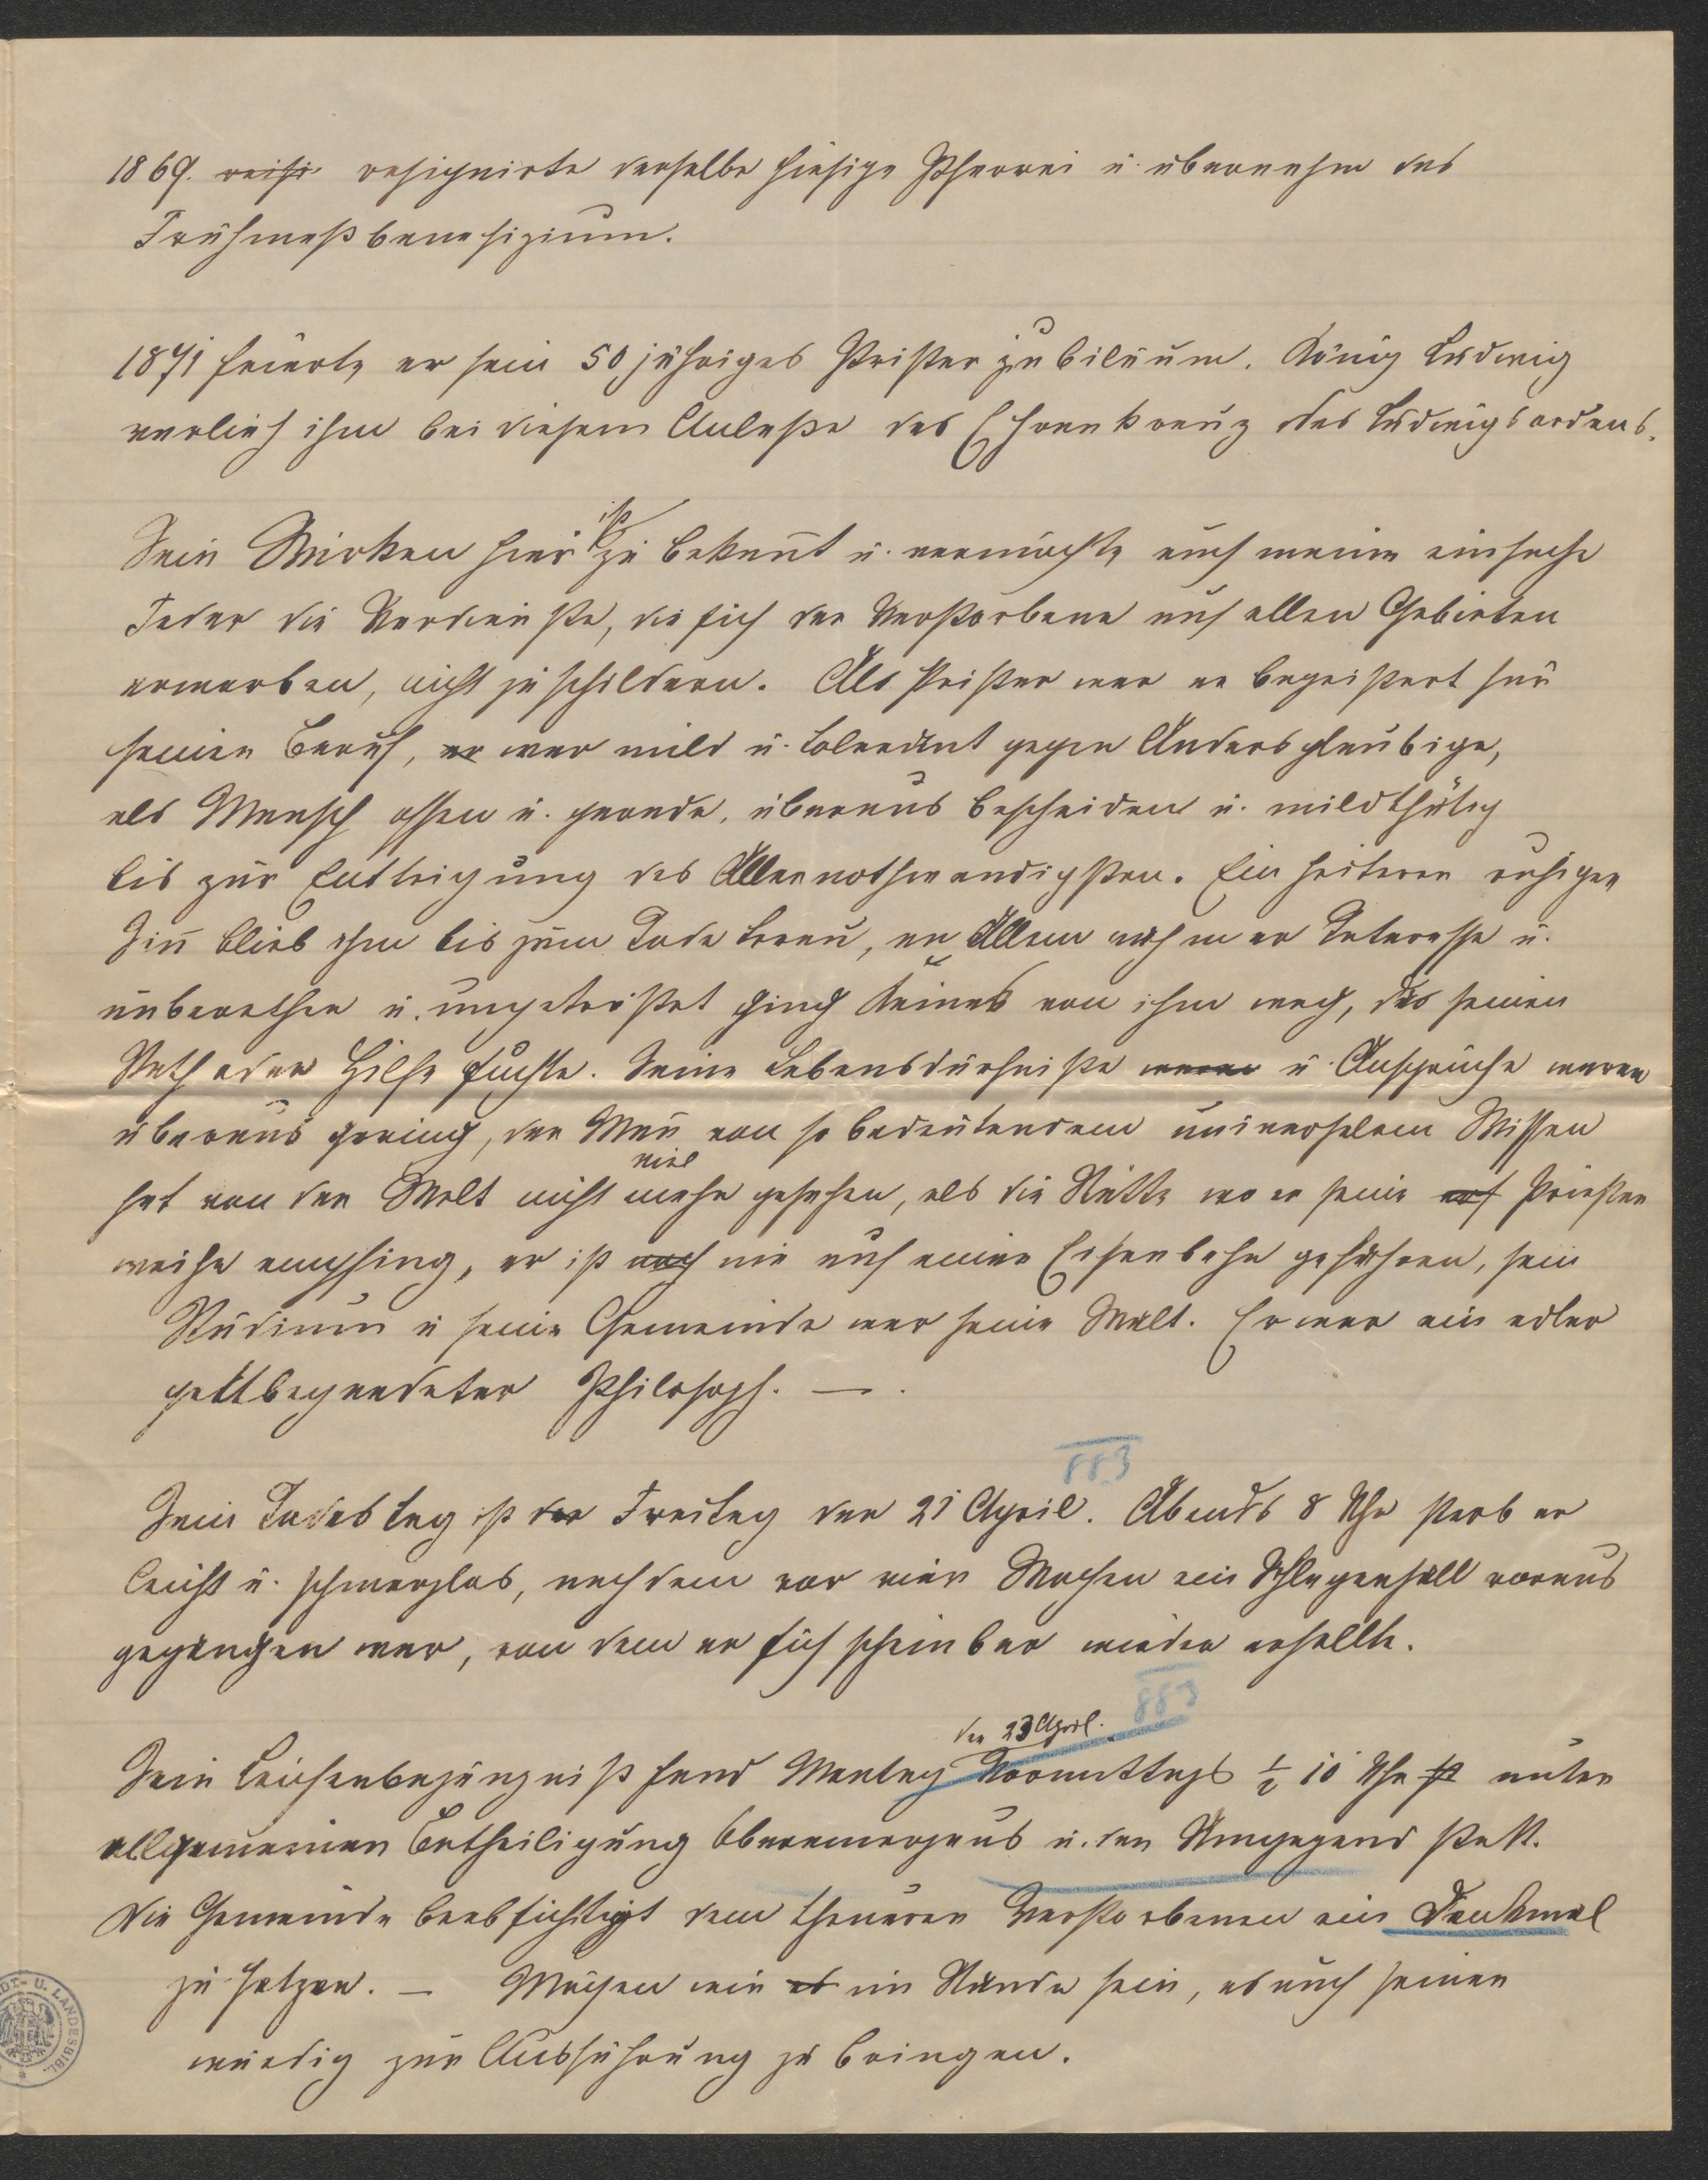 1869. resignirte derselbe hiesige Pfarrei u. übernahm das
Frühmeßbenefizium.
1871 feierte er sein 50 jähriges Pristerjubiläum. König Ludwig
verlieh ihm bei diesem Anlaße das Ehrenkreuz des Ludwigsordens.
Sein Wirken hier ist zu bekannt u. vermöchte auch meine einfache
Feder die Verdienste, die sich der Verstorbene auf allen Gebieten
erworben, nicht zu schildern. Als Prister war er begeistert für
seinen Beruf, er war mild u. tolerant gegen Andersglaubige,
als Mensch offen u. gerade, überaus bescheiden u. mildthätig
bis zur Entleigung des Allernothwendigsten. Ein heiterer ruhiger
Sinn blieb ihm bis zum Tode treu, an Allem nahm er Interesse u.
unberathen u. ungetröstet ging Keiner von ihm weg, der seinen
Rath oder Hilfe suchte. Seine Lebensdürfniße waren u. Ansprüche waren
überaus gering, der Mann von so bedeutendem universalem Wissen
viel
hat von der Welt nicht mehr gesehen, als die Stätte wo er seine Priester
weihe empfing, er ist noch nie auf einer Eisenbahn gefahren, sein
Studium u seine Gemeinde war seine Welt. Er war ein edler
gottbegnadeter Philosoph. —.
883
Sein Todestag ist der Freitag der 21 April. Abends 8 Uhr starb er
leicht u. schmerzlos, nachdem vor vier Wochen ein Schlaganfall voraus
gegangen war, von dem er sich scheinbar wieder erhollte.
883
den 23 April.
Sein Leichenbegängniß fand Montag Vormittags ½ 10 Uhr st unter
allgemeiner Betheiligung Oberamergaus u. der Umgegend statt.
Die Gemeinde beabsichtigt dem theueren Verstorbenen ein Denkmal
zu setzen. — Mögen wir es im Stande sein, es auch seiner
würdig zur Ausführung zu bringen.